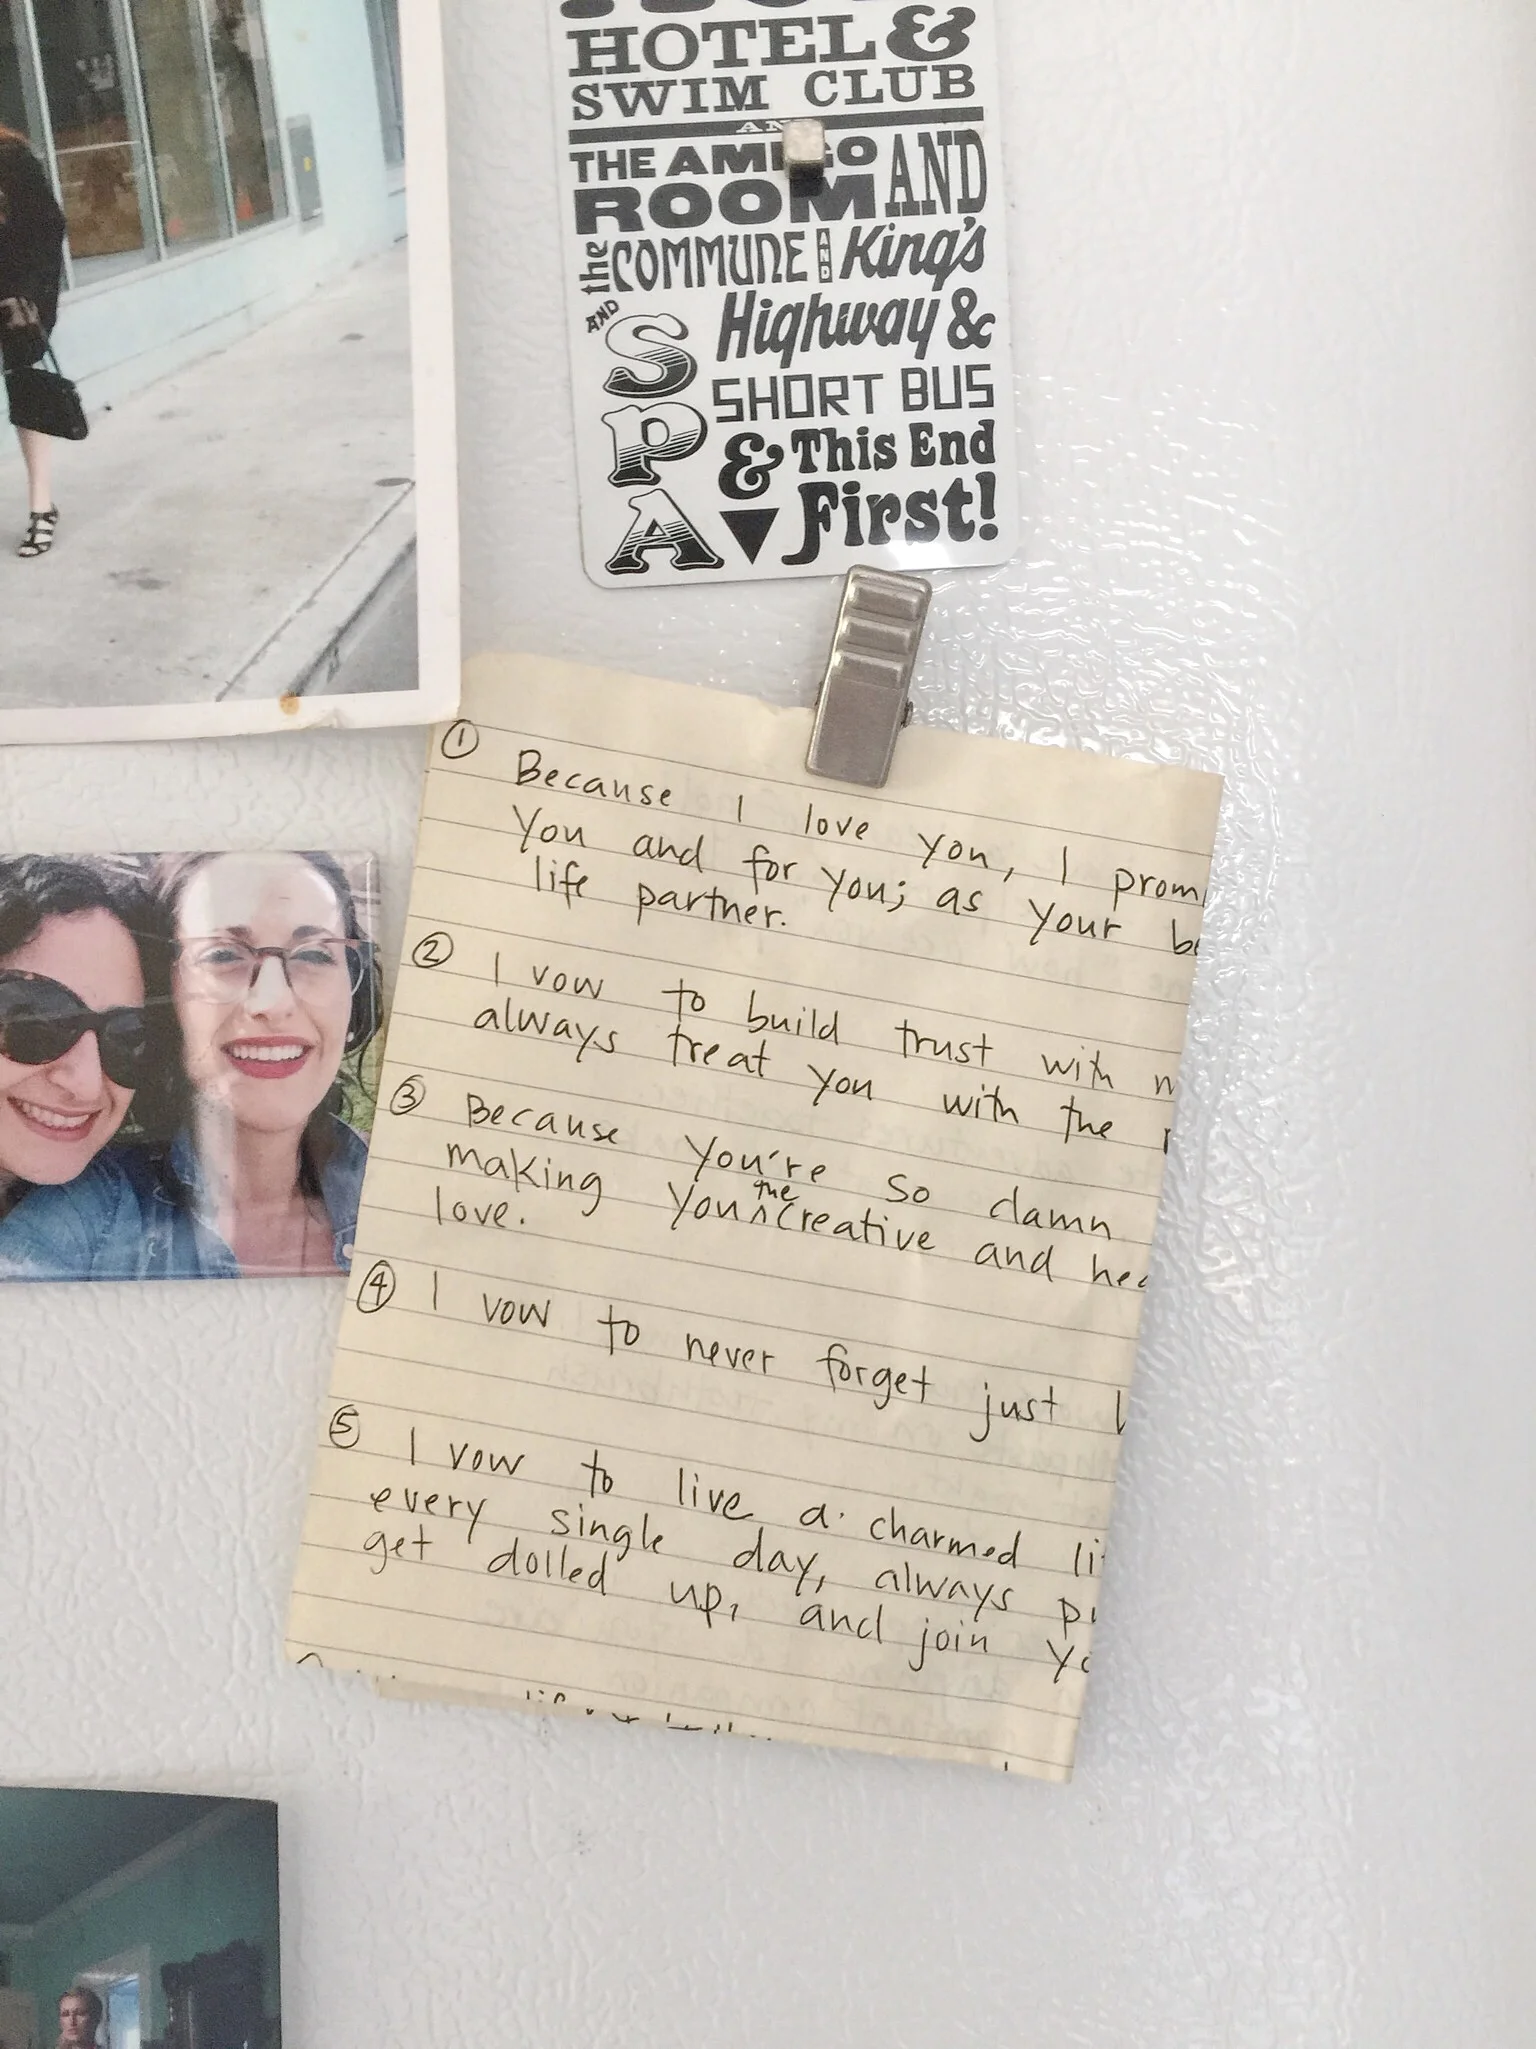 HOTEL &
SWIM CLUB
THE AMIGO
ROOM AND
the COMMUNE AND King's
AND Highway &
SPA
SHORT BUS
& This End
First!
① Because I love you, I prom
you and for you; as your be
life partner.
② I vow to build trust with m
always treat you with the
③ Because you're so damn
making you the creative and hea
love.
④ I vow to never forget just
⑤ I vow to live a charmed li
every single day, always p
get dolled up, and join yo